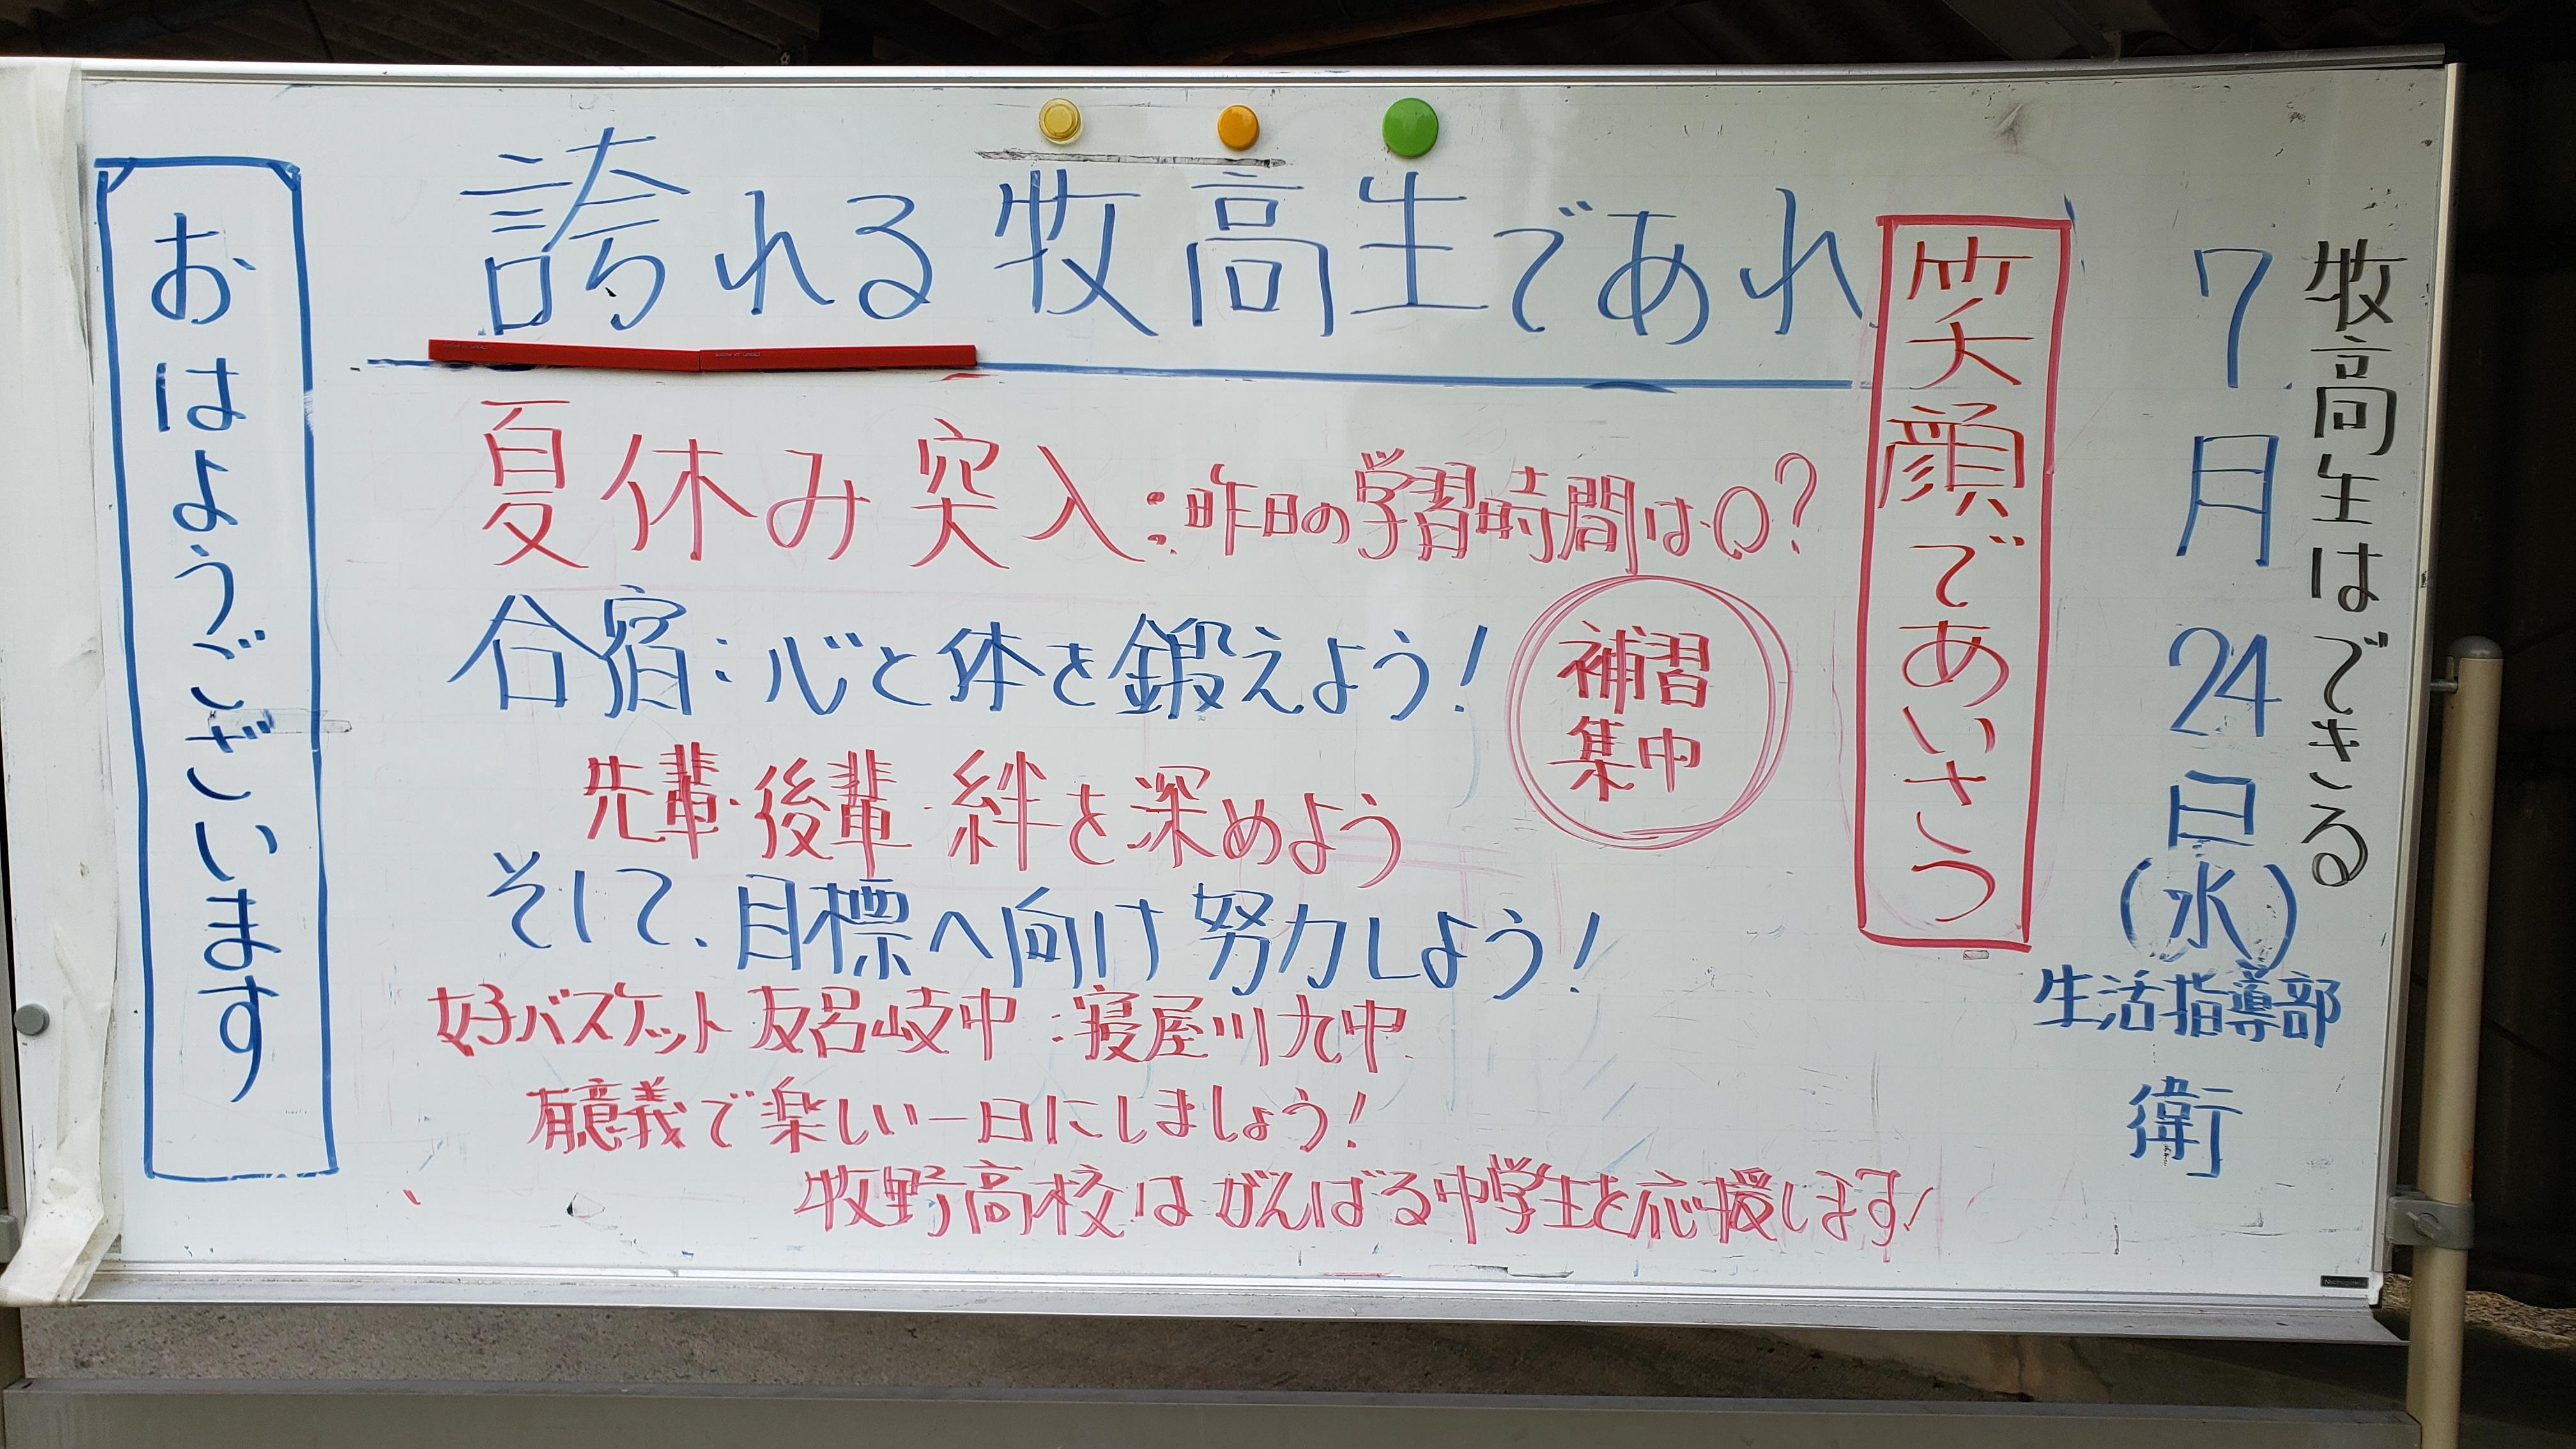 牧高生はできる
7月24日(水)
生活指導部
衛
笑顔であいさつ
誇れる牧高生であれ
夏休み突入:昨日の学習時間は0?
合宿:心と体を鍛えよう!
補習
集中
先輩・後輩・絆を深めよう
そして、目標へ向け努力しよう!
女子バスケット 友呂岐中:寝屋川九中
有意義で楽しい一日にしましょう!
牧野高校はがんばる中学生を応援します!
おはようございます